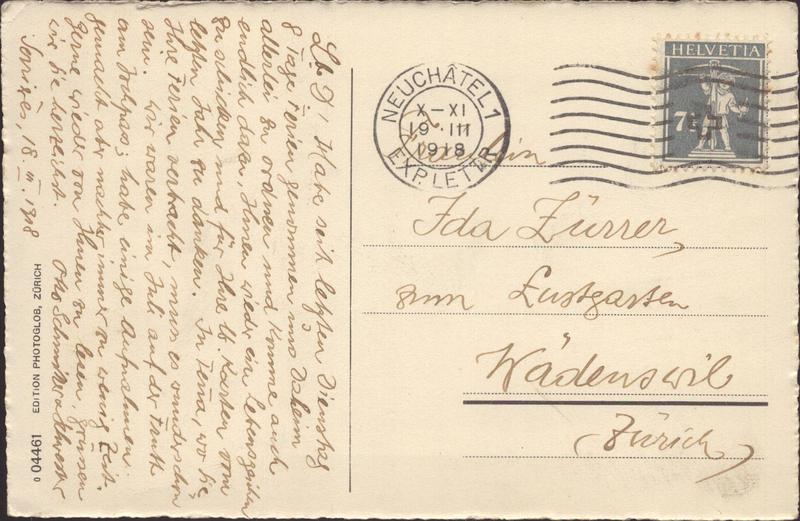 Lb D, Habe seit letzten Dienstag
8 Tage Ferien genommen ins Valais um
allerlei zu ordnen und komme auch
endlich dazu, Ihnen wieder ein Lebenszeichen
zu schicken und für Ihre lb. Karten vom
letzten Jahr zu danken. In wo Sie
Ihre Ferien verbracht, muss es wunderschön
sein. Wir waren im Juli auf der Frutt
am Jochpass; habe einige Aufnahmen
gemacht aber nachher immer zu wenig Zeit.
Gerne wieder von Ihnen zu lesen grüssen
wir Sie herzlichst. Otto
18. III. 1918
EDITION PHOTOGLOB, ZÜRICH
04461
NEUCHÂTEL 1
X–XI
19 III
1918
EXP. LETTR.
HELVETIA
7½
Fräulein
Ida Zürrer,
zum Lustgarten
Wädenswil
(Zürich)